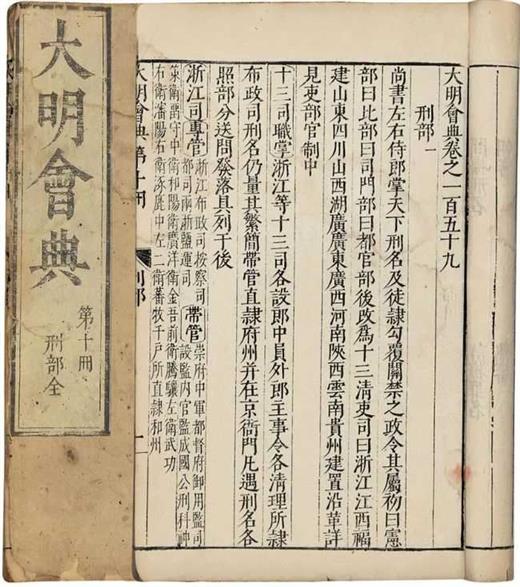 大明會典卷之一百五十九
刑部一
尚書左右侍郎掌天下刑名及徒隸勾覆關禁之政令其屬初曰憲
部曰比部曰司門部曰都官部後改爲十三清吏司曰浙江江西福
建山東四川山西湖廣廣東廣西河南陝西雲南貴州建置沿革詳
見吏部官制中
十三司職掌浙江等十三司各設郎中員外郎主事令各清理所隸
布政司刑名仍量其繁簡帶管直隸府州并在京衙門凡遇刑名各
照部分送問發落具列于後
浙江司專管
浙江布政司按察司
都司兩浙鹽運司
帶管
崇府中軍都督府御用監司
設監內官監成國公刑科神
策衛留守中衛和陽衛廣洋衛金吾前衛騰驤左衛武功
右衛瀋陽右衛涿鹿中左二衛蕃牧千戶所直隸和州
大明會典第十冊
刑部
大明會典
第十冊
刑部全